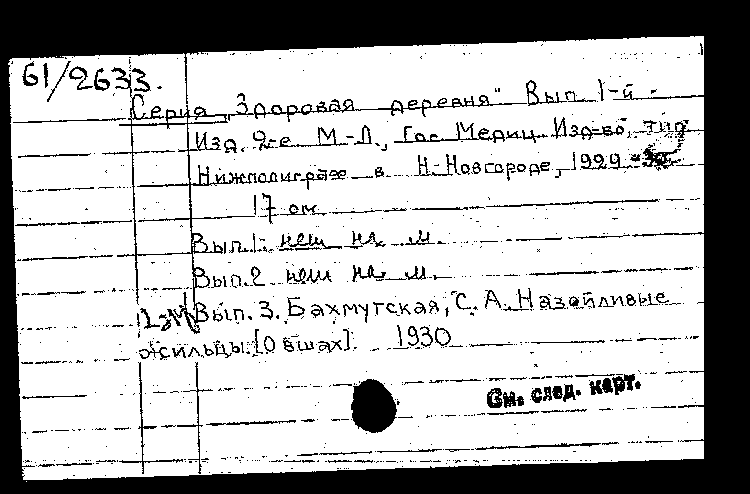 61/2633.
Серия „Здоровая деревня" Вып. 1-й -
Изд. 2-е М-Л., Гос. Медиц. Изд-во, тип.
Нижполиграф в Н-Новгороде, 1929 -
17 см.
Вып. 1- нет на м.
Вып. 2 нет на м.
Вып. 3. Бахмутская, С. А. Назойливые
жильцы. [О вшах]. 1930
См. след. карт.